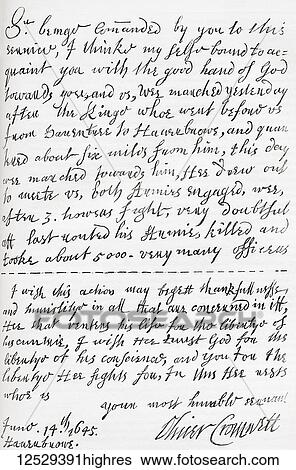 Sr. beinge comanded by you to this
service, I thinke my selfe bound to ac-
quaint you with the good hand of God
towards you, and vs, wee marched yesterday
after the Kinge whoe went before vs
from Dauentree to Hauerbrowe, and quar-
tered about six miles from him, this day
wee marched towards him, Hee drew out
to meete vs, both Armies engaged, wee,
after 3. howers fight, very doubtful
att last routed his Armie, killed and
tooke about 5000. very many officers
I wish this action may begett thankfullnesse,
and humilitye in all that are concerned in itt,
Hee that venters his life for the libertye of
his cuntrie, I wish Hee trust God for the
libertye of his conscience, and you for the
libertye Hee fights for, In this Hee rests
whoe is
your most humble servant
Oliver Cromwell
June. 14th. 1645.
Hauerbrowe.
FOTOSEARCH
12529391highres www.fotosearch.com